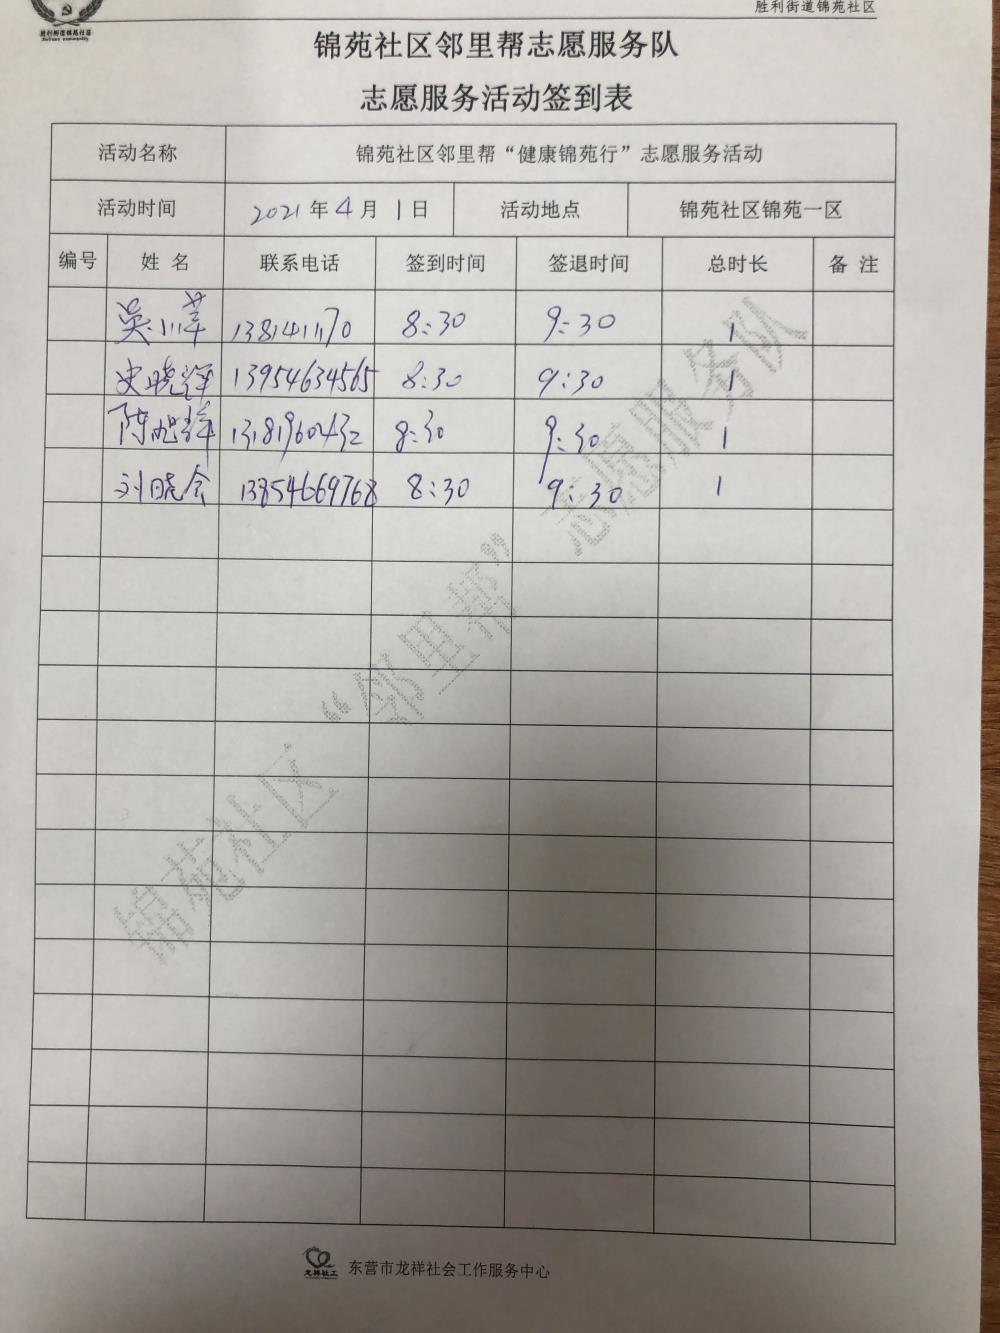 胜利街道锦苑社区
胜利街道锦苑社区
锦苑社区邻里帮志愿服务队
志愿服务活动签到表
活动名称 锦苑社区邻里帮“健康锦苑行”志愿服务活动
活动时间 2021年4月1日 活动地点 锦苑社区锦苑一区
编号 姓名 联系电话 签到时间 签退时间 总时长 备注
吴川萍 8:30 9:30 1
史晓辉 13954634565 8:30 9:30 1
陈旭辉 8:30 9:30 1
刘晓会 13854669768 8:30 9:30 1
锦苑社区“邻里帮”志愿服务队
龙祥社工 东营市龙祥社会工作服务中心